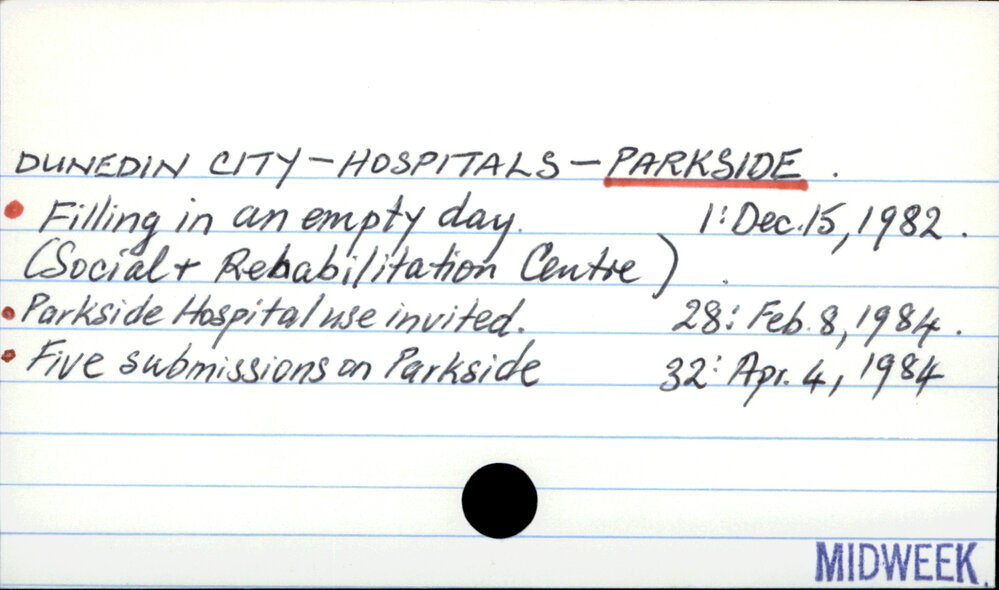 DUNEDIN CITY - HOSPITALS - PARKSIDE.
• Filling in an empty day. 1: Dec. 15, 1982.
(Social + Rehabilitation Centre).
• Parkside Hospital use invited. 28: Feb. 8, 1984.
• Five submissions on Parkside 32: Apr. 4, 1984
MIDWEEK.